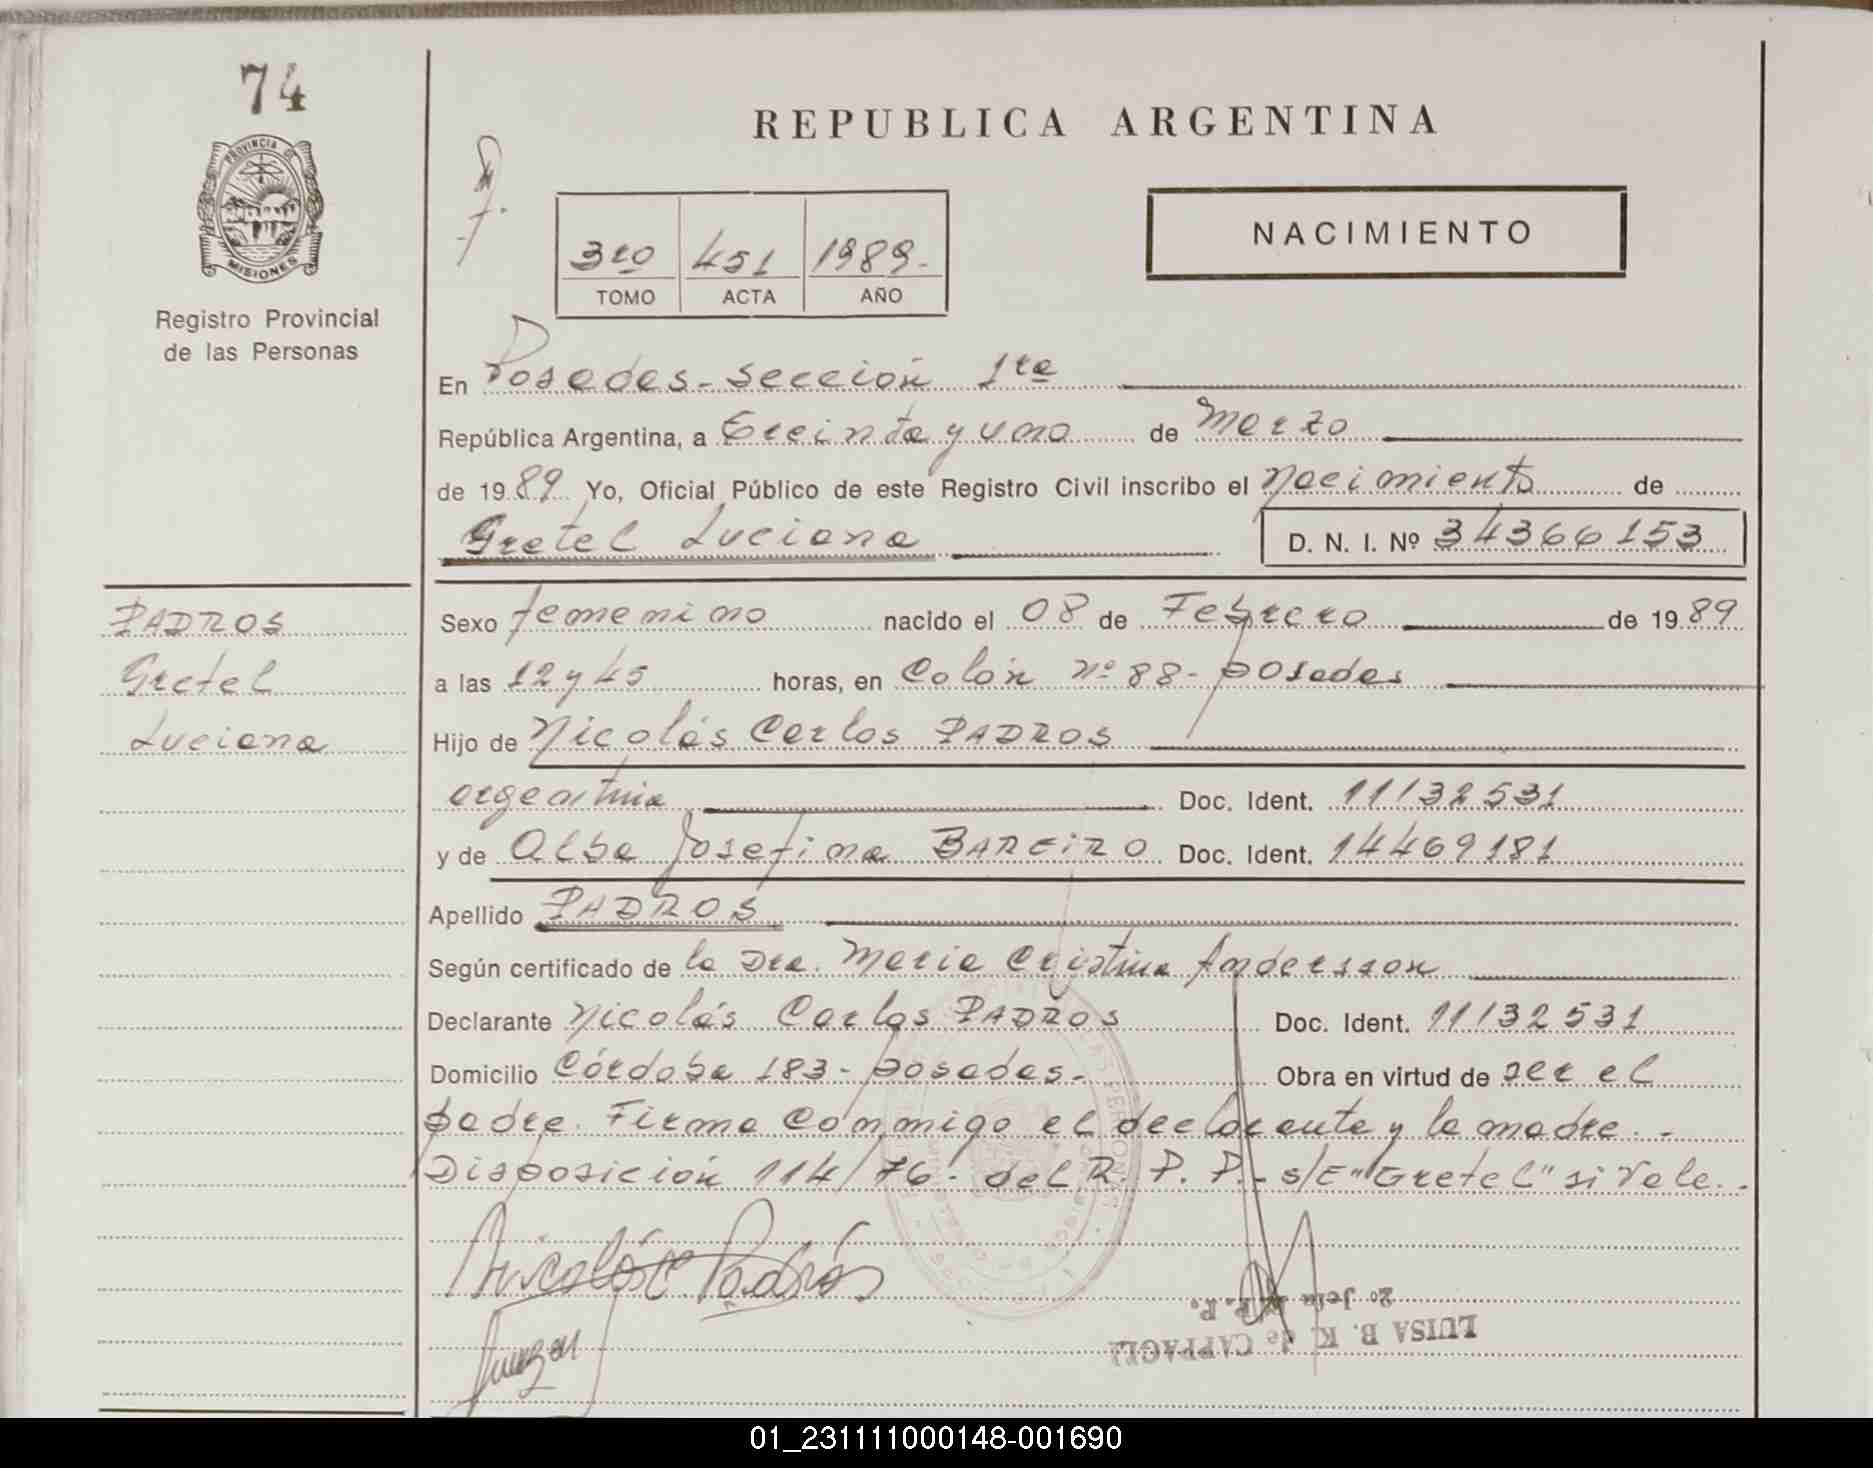 74
PROVINCIA DE
MISIONES
Registro Provincial
de las Personas
REPUBLICA ARGENTINA
3ro 451 1989.-
TOMO ACTA AÑO
NACIMIENTO
En Posadas - Sección 1ra
República Argentina, a treinta y uno de Marzo
de 1989 Yo, Oficial Público de este Registro Civil inscribo el nacimiento de
Gretel Luciana D. N. I. Nº 34366153
PADROS
Gretel
Luciana
Sexo femenino nacido el 08 de Febrero de 1989
a las 12 y 45 horas, en Colón Nº 88 - Posadas
Hijo de Nicolás Carlos PADROS
argentina Doc. Ident. 11132531
y de Alba Josefina BAREIRO Doc. Ident. 14469181
Apellido PADROS
Según certificado de la Dra. Maria Cristina Andersson
Declarante Nicolás Carlos PADROS Doc. Ident. 11132531
Domicilio Córdoba 183 - Posadas.- Obra en virtud de ser el
padre. Firma conmigo el declarante y la madre. -
Disposición 114/76 - del R. P. P. - s/E "Gretel" si Vale. -
Nicolás C Padrós
2º Jefa R.P.P.
LUISA B. K. de CAPPAGLI
01_231111000148-001690